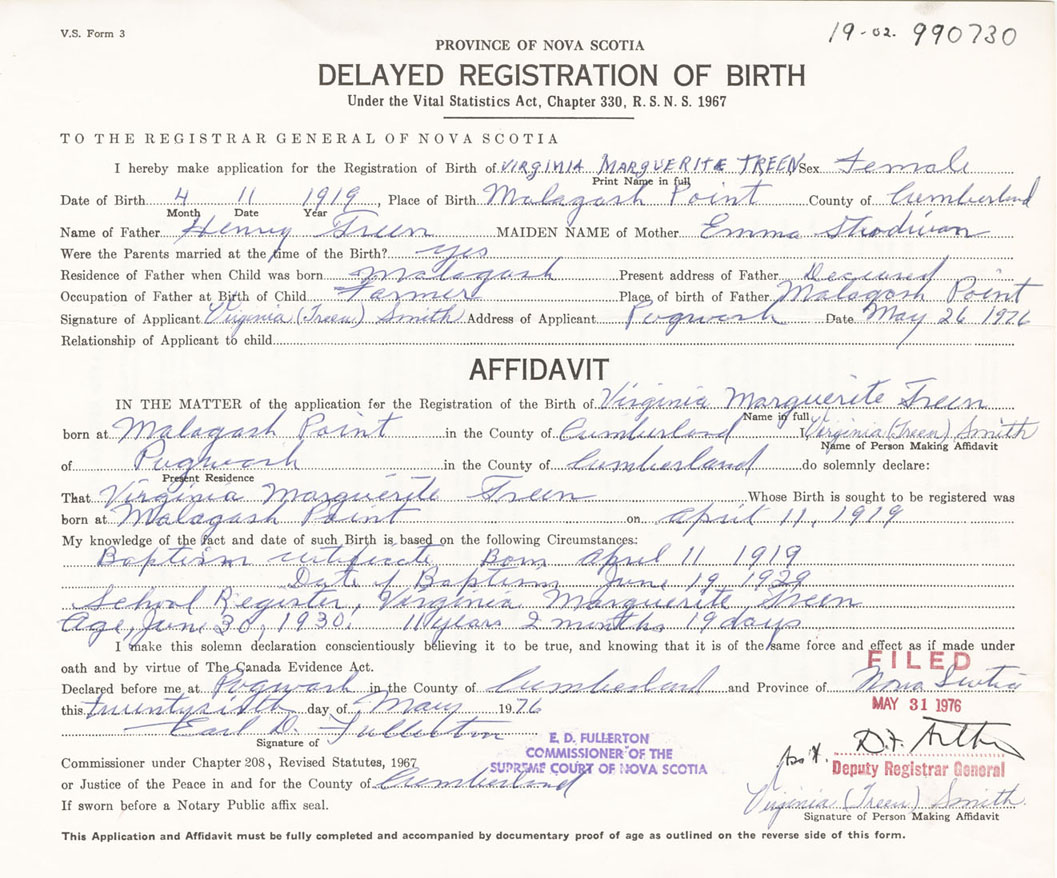 V.S. Form 3
19-02. 990730
PROVINCE OF NOVA SCOTIA
DELAYED REGISTRATION OF BIRTH
Under the Vital Statistics Act, Chapter 330, R. S. N. S. 1967
TO THE REGISTRAR GENERAL OF NOVA SCOTIA
I hereby make application for the Registration of Birth of VIRGINIA MARGUERITE TREEN Sex Female
Print Name in full
Date of Birth 4 11 1919, Place of Birth Malagash Point County of Cumberland
Month Date Year
Name of Father Henry Treen MAIDEN NAME of Mother Emma
Were the Parents married at the time of the Birth? yes
Residence of Father when Child was born Malagash Present address of Father Deceased
Occupation of Father at Birth of Child Farmer Place of birth of Father Malagash Point
Signature of Applicant Virginia (Treen) Smith Address of Applicant Pugwash Date May 26 1976
Relationship of Applicant to child
AFFIDAVIT
IN THE MATTER of the application for the Registration of the Birth of Virginia Marguerite Treen
Name in full
born at Malagash Point in the County of Cumberland I Virginia (Treen) Smith
Name of Person Making Affidavit
of Pugwash in the County of Cumberland do solemnly declare:
Present Residence
That Virginia Marguerite Treen Whose Birth is sought to be registered was
born at Malagash Point on april 11, 1919
My knowledge of the fact and date of such Birth is based on the following Circumstances:
Baptism certificate Born april 11 1919
Date of Baptism June 19, 1929
School Register, Virginia Marguerite Treen
Age, June 30, 1930. 11 years 2 months 19 days
I make this solemn declaration conscientiously believing it to be true, and knowing that it is of the same force and effect as if made under
oath and by virtue of The Canada Evidence Act.
FILED
Declared before me at Pugwash in the County of Cumberland and Province of Nova Scotia
this twentysixth day of May 1976
MAY 31 1976
Earl D. Fullerton
Signature of
E. D. FULLERTON
COMMISSIONER OF THE
SUPREME COURT OF NOVA SCOTIA
Commissioner under Chapter 208, Revised Statutes, 1967
Ass't. Deputy Registrar General
or Justice of the Peace in and for the County of Cumberland
Virginia (Treen) Smith
If sworn before a Notary Public affix seal.
Signature of Person Making Affidavit
This Application and Affidavit must be fully completed and accompanied by documentary proof of age as outlined on the reverse side of this form.